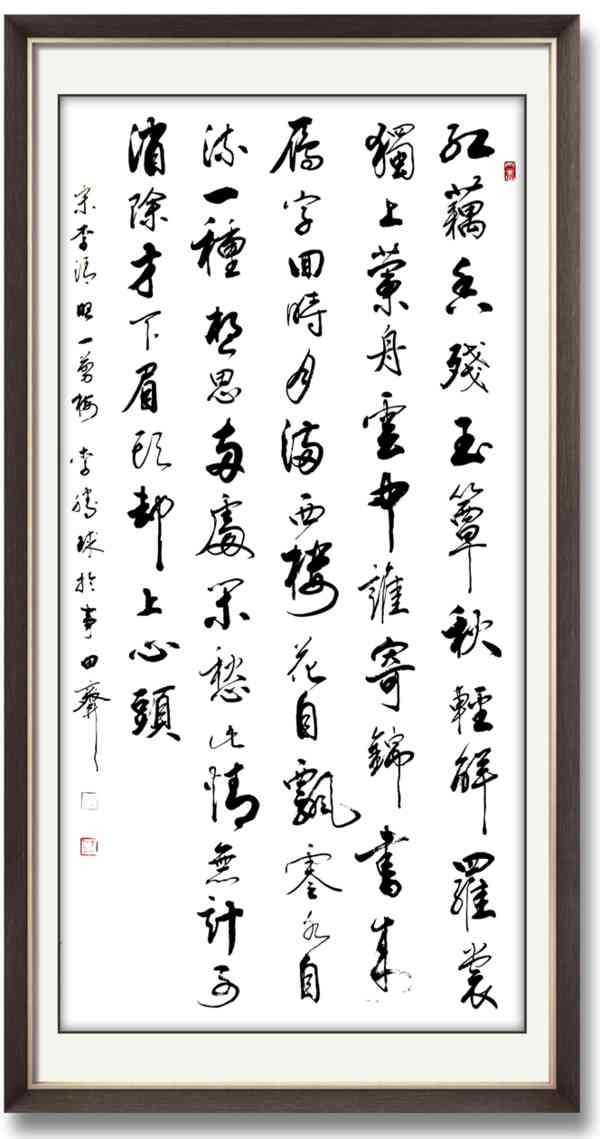 紅藕香殘玉簟秋輕解羅裳
獨上蘭舟雲中誰寄錦書來
雁字回時月滿西樓花自飄零水自
流一種相思兩處閑愁此情無計可
消除才下眉頭却上心頭
宋李清照一剪梅 李球於田齋